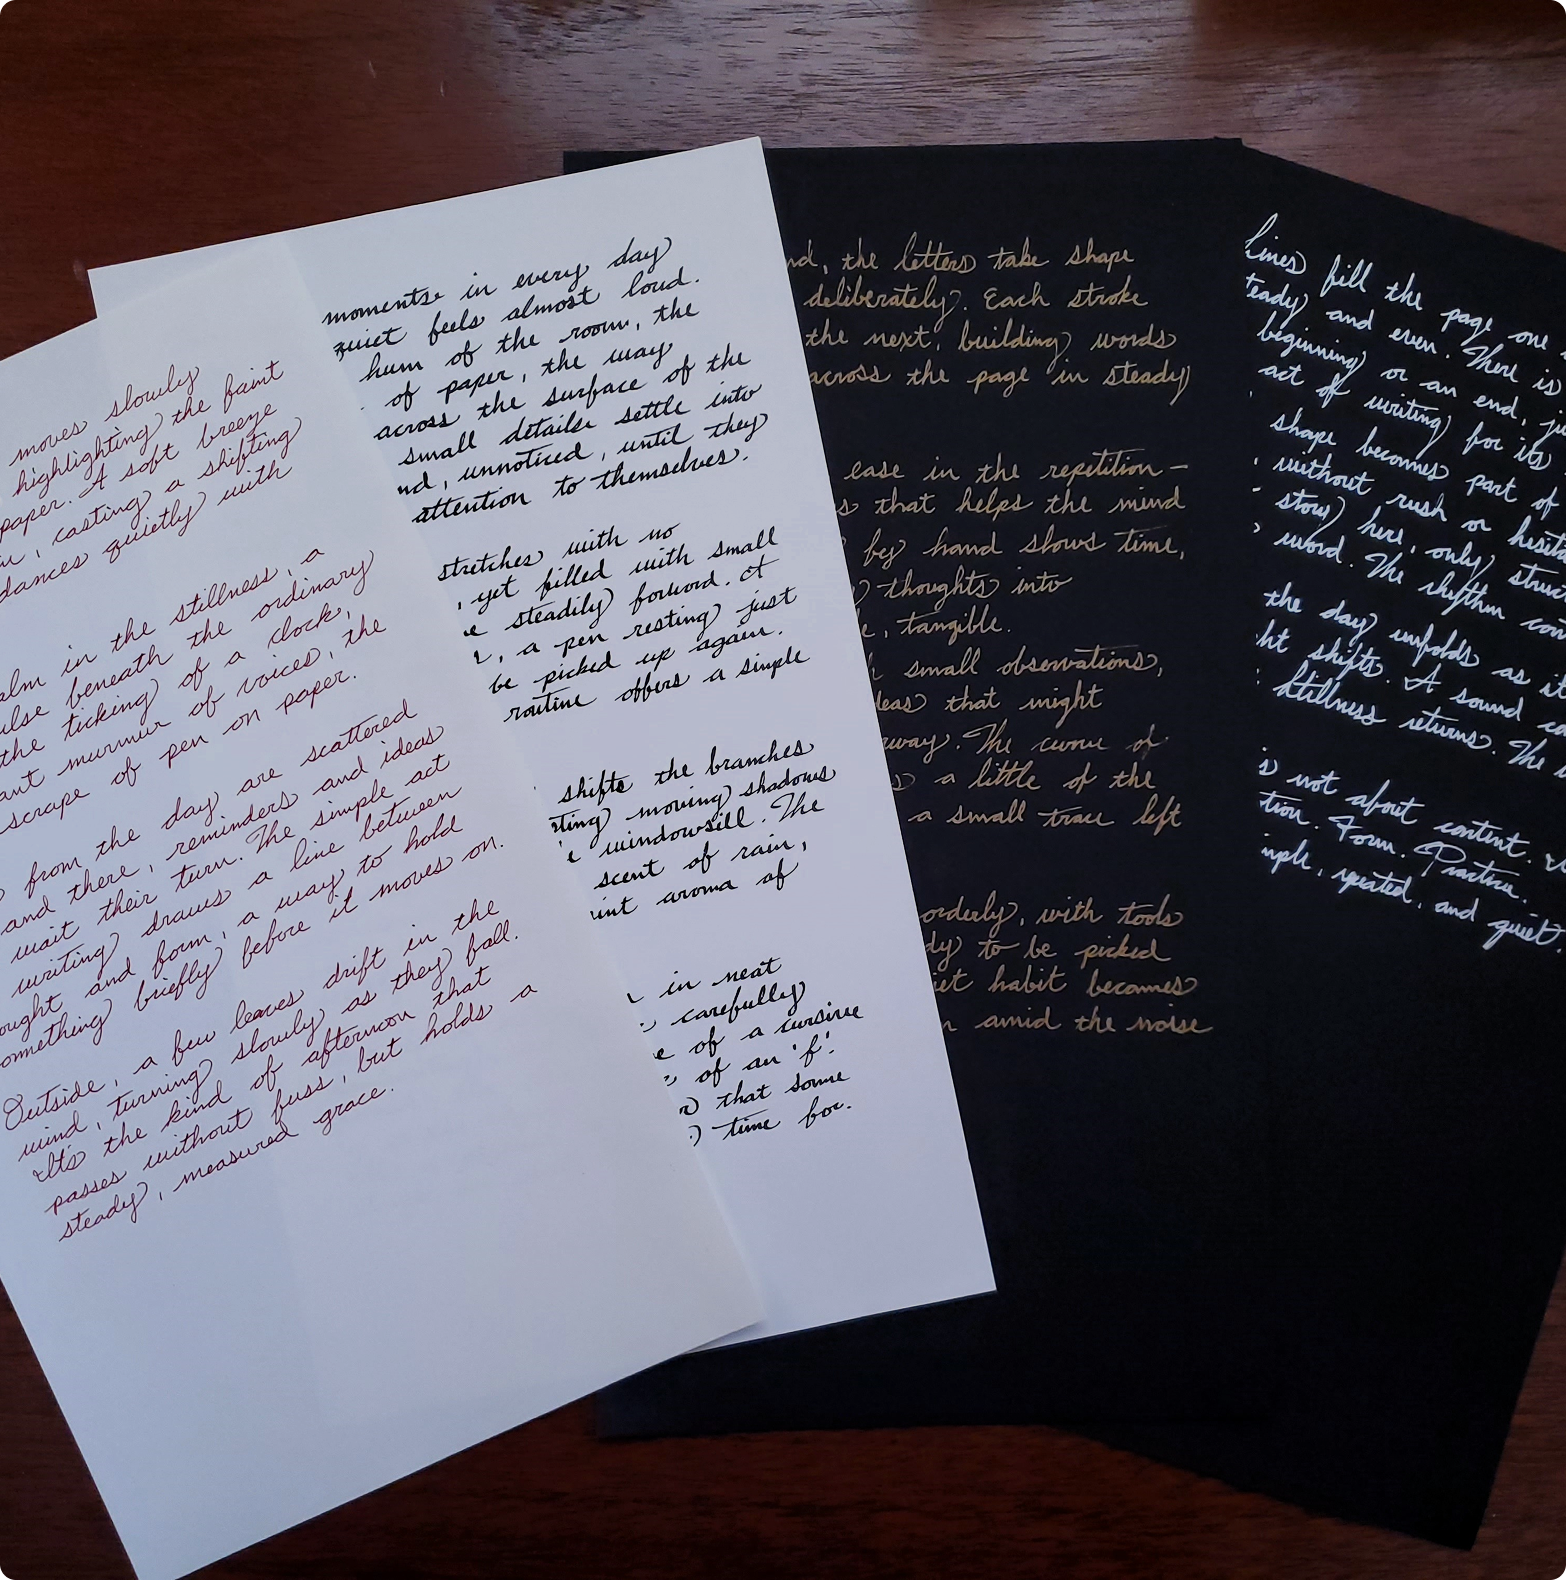 moves slowly
highlighting the faint
paper. A soft breeze
, casting a shifting
dances quietly with
in the stillness, a
beneath the ordinary
the ticking of a clock,
murmur of voices, the
scrape of pen on paper.
from the day are scattered
and there, reminders and ideas
wait their turn. The simple act
writing draws a line between
and form, a way to hold
something briefly before it moves on.
Outside, a few leaves drift in the
wind, turning slowly as they fall.
It's the kind of afternoon that
passes without fuss, but holds a
steady, measured grace.
moments in every day
quiet feels almost loud.
hum of the room, the
of paper, the way
across the surface of the
small details settle into
unnoticed, until they
attention to themselves.
stretches with no
, yet filled with small
steadily forward. A
, a pen resting just
be picked up again.
routine offers a simple
shifts the branches
moving shadows
windowsill. The
scent of rain,
aroma of
in neat
carefully
of a cursive
of an 'f'.
that some
time for.
, the letters take shape
deliberately. Each stroke
the next, building words
across the page in steady
ease in the repetition —
that helps the mind
by hand slows time,
thoughts into
, tangible.
small observations,
that might
away. The curve of
a little of the
a small trace left
orderly, with tools
to be picked
habit becomes
amid the noise
Lines fill the page one
and even. There is
beginning or an end,
act of writing for its
shape becomes part of
without rush or
story here, only
word. The rhythm
the day unfolds as it
shifts. A sound
Stillness returns. The
not about content.
Form. Practice.
, repeated, and quiet.